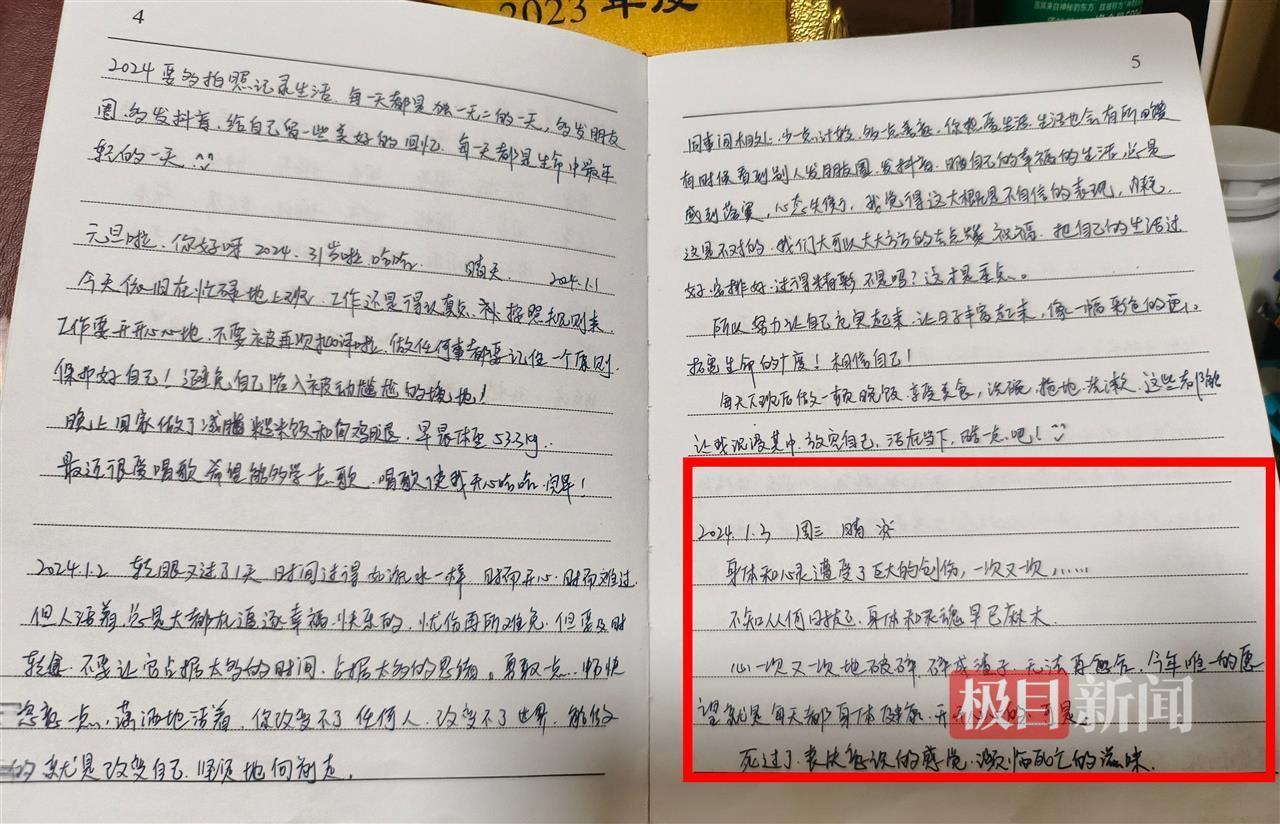 2023年度
4
2024要多拍照记录生活、每一天都是独一无二的一天，多发朋友
圈、多发抖音、给自己留一些美好的回忆、每一天都是生命中最年
轻的一天
元旦啦、你好呀2024、31岁啦、哈哈、 晴天 2024.1.1
今天依旧在忙碌地上班、工作还是得认真点、按照规则来、
工作要开开心心地、不要被再次批评啦、做任何事都要记住一个原则、
保护好自己！避免自己陷入被动尴尬的境地！
晚上回家做了减脂糙米饭和鸡腿、早晨体重53.3kg、
最近很爱唱歌、希望能多学点歌、唱歌使我开心哈哈、
2024.1.2 转眼又过了1天 时间过得如流水一样、时而开心、时而难过
但人活着、总是大都在追逐幸福、快乐的、忧伤再所难免、但要及时
转身、不要让它占据太多的时间、占据太多的思绪。勇敢一点、畅快
一点、潇洒地活着、你改变不了任何人、改变不了世界、能做
的就是改变自己、坚定地向前走。
5
同事间相处、少点计较、多点善意、你热爱生活、生活也会有所回馈
有时候看到别人发朋友圈、发抖音、晒自己的幸福的生活、总是
感到落寞，心态失衡了，我觉得这大概是不自信的表现，内耗、
这是不对的、我们大可以大大方方的去点赞、祝福、把自己的生活过
好、安排好、过得精彩不是吗？这才是重点。
所以努力让自己充实起来、让日子丰富起来，像一幅彩色的画、
拓宽生命的广度！相信自己！
每天下班后做一顿晚饭、享受美食，洗碗、拖地、洗漱、这些都能
让我沉浸其中、放空自己、活在当下，酷一点、吧！
2024.1.3 周三 晴
身体和心灵遭受了巨大的创伤，一次又一次，……
不知从何时起、身体和灵魂早已麻木、
心一次又一次地破碎、碎成渣子、无法再愈合、今年唯一的愿
望就是每天都身体健康、开开心心的、可是、
死过了、表决多次的感觉、濒临死亡的滋味、
极目新闻